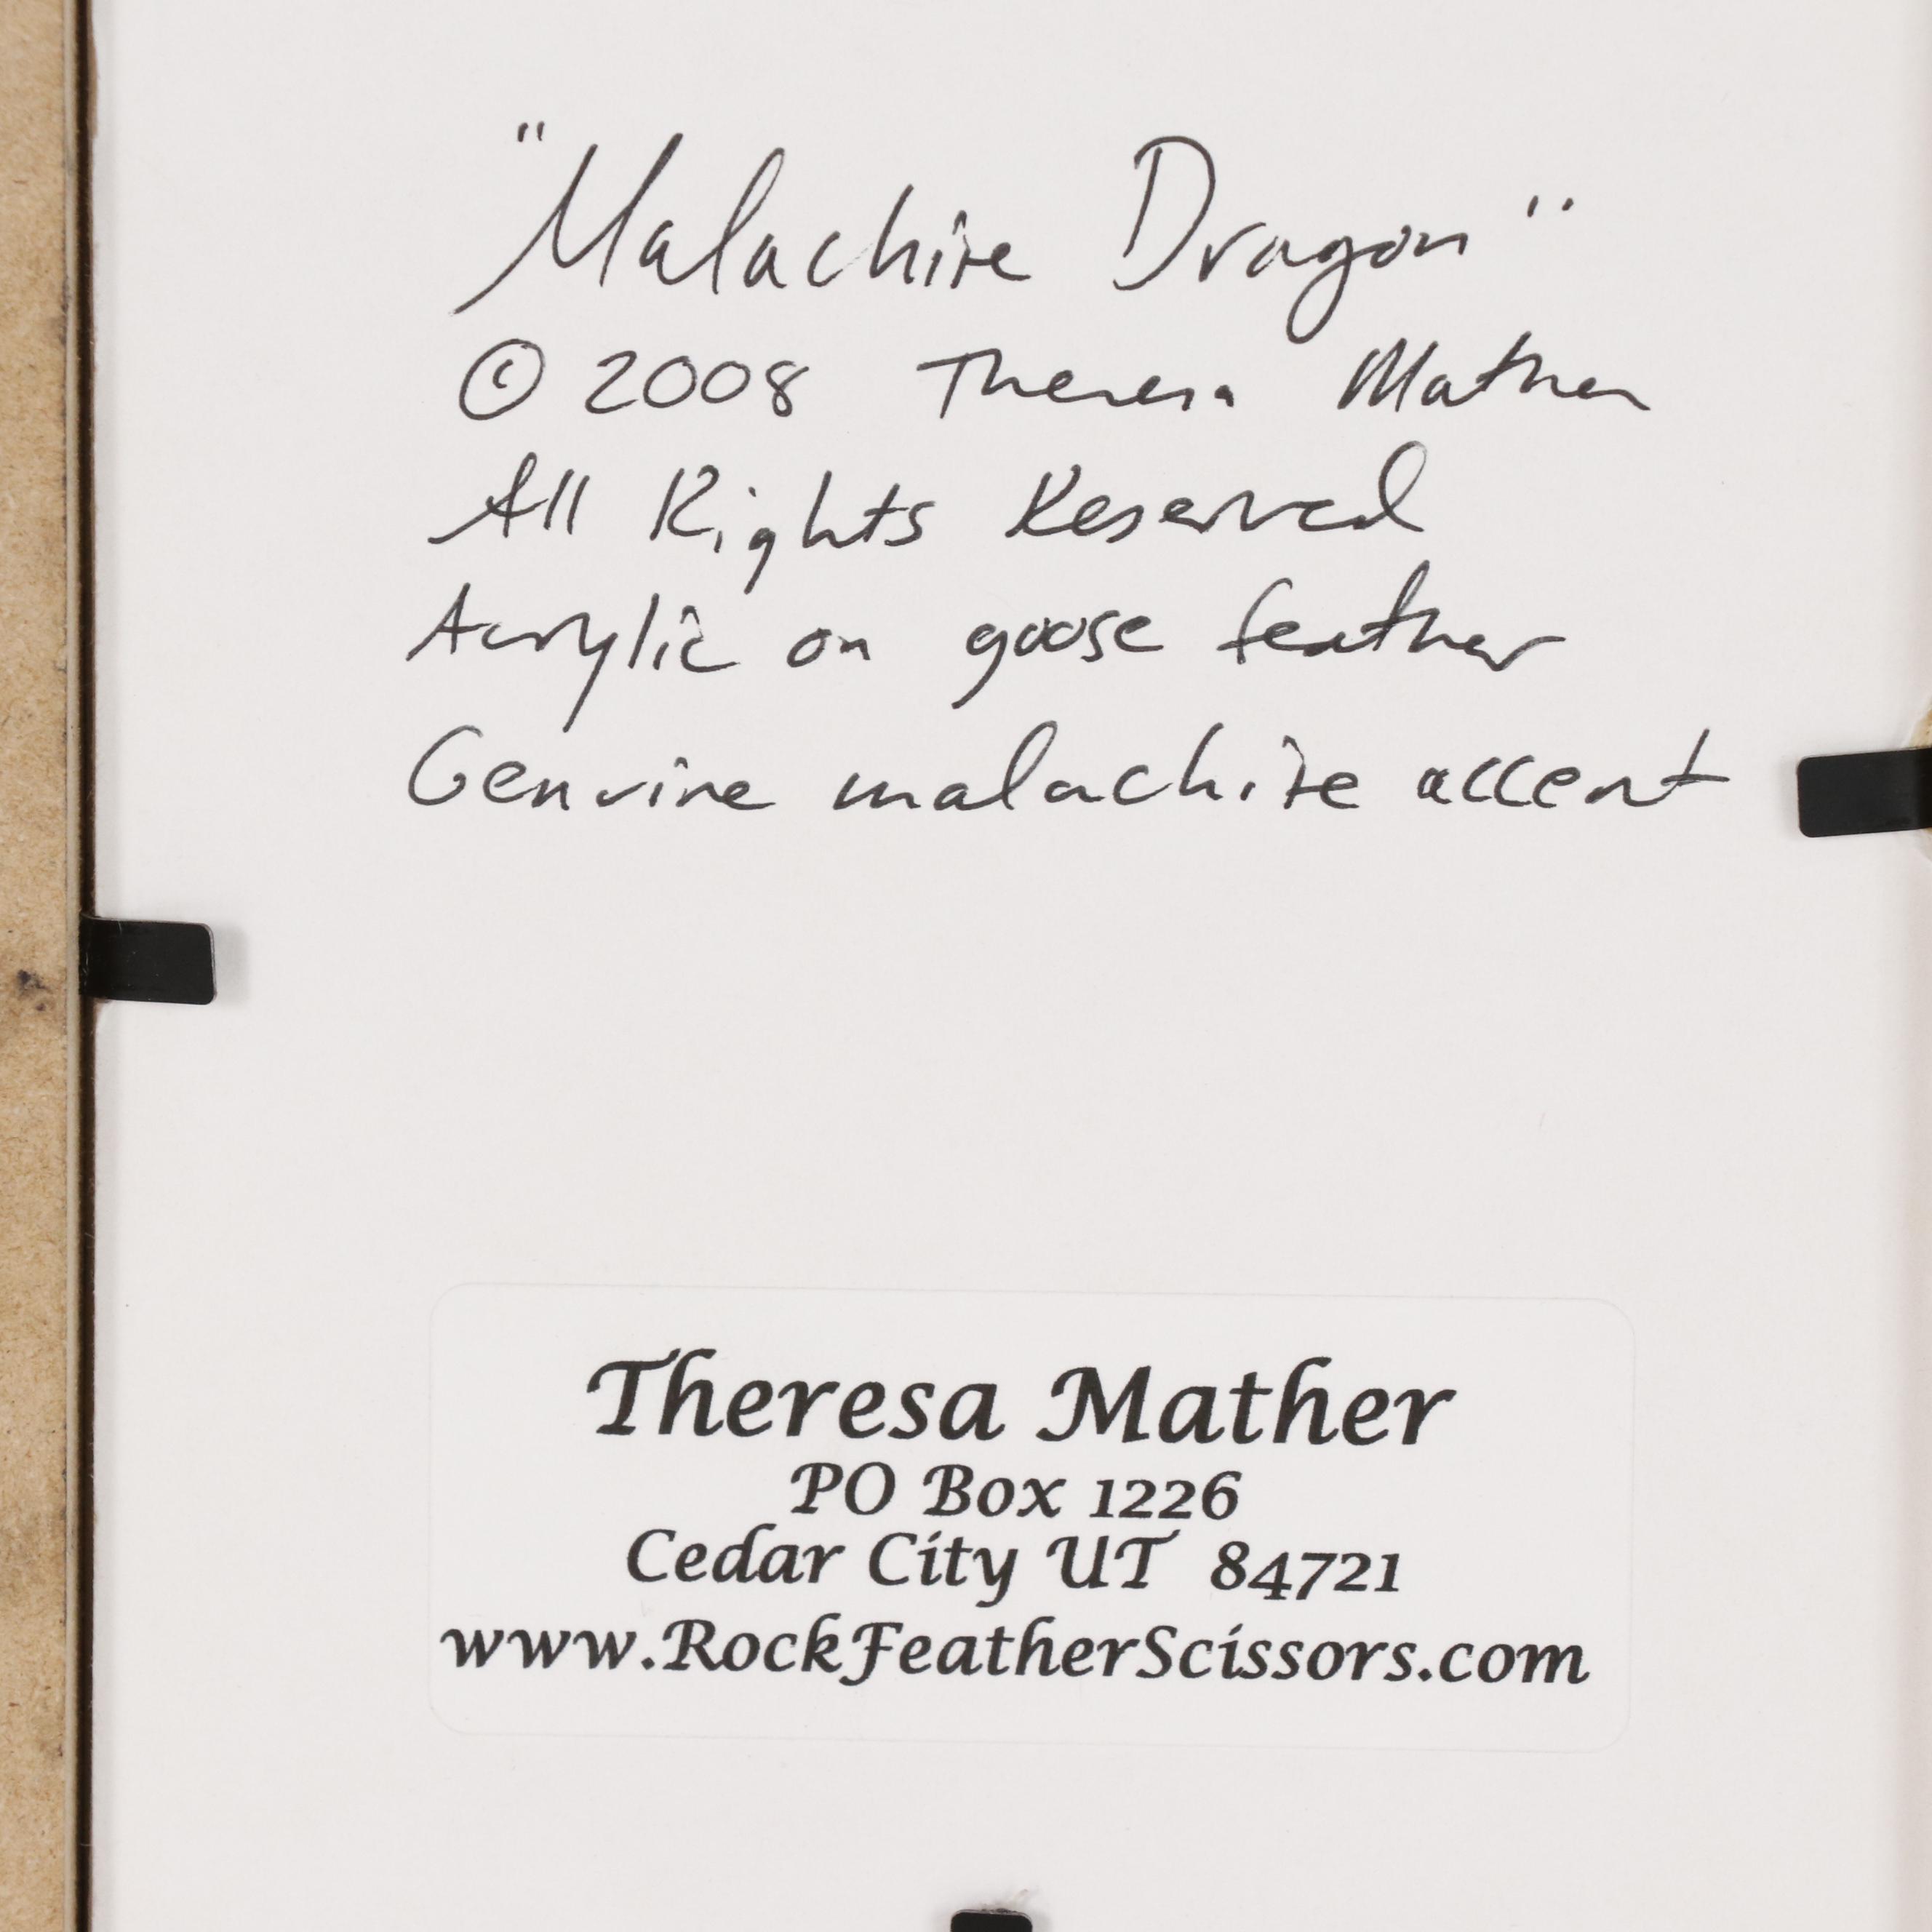 "Malachite Dragon"
© 2008 Theresa Mather
All Rights Reserved
Acrylic on goose feather
Genuine malachite accent
Theresa Mather
PO Box 1226
Cedar City UT 84721
www.RockFeatherScissors.com